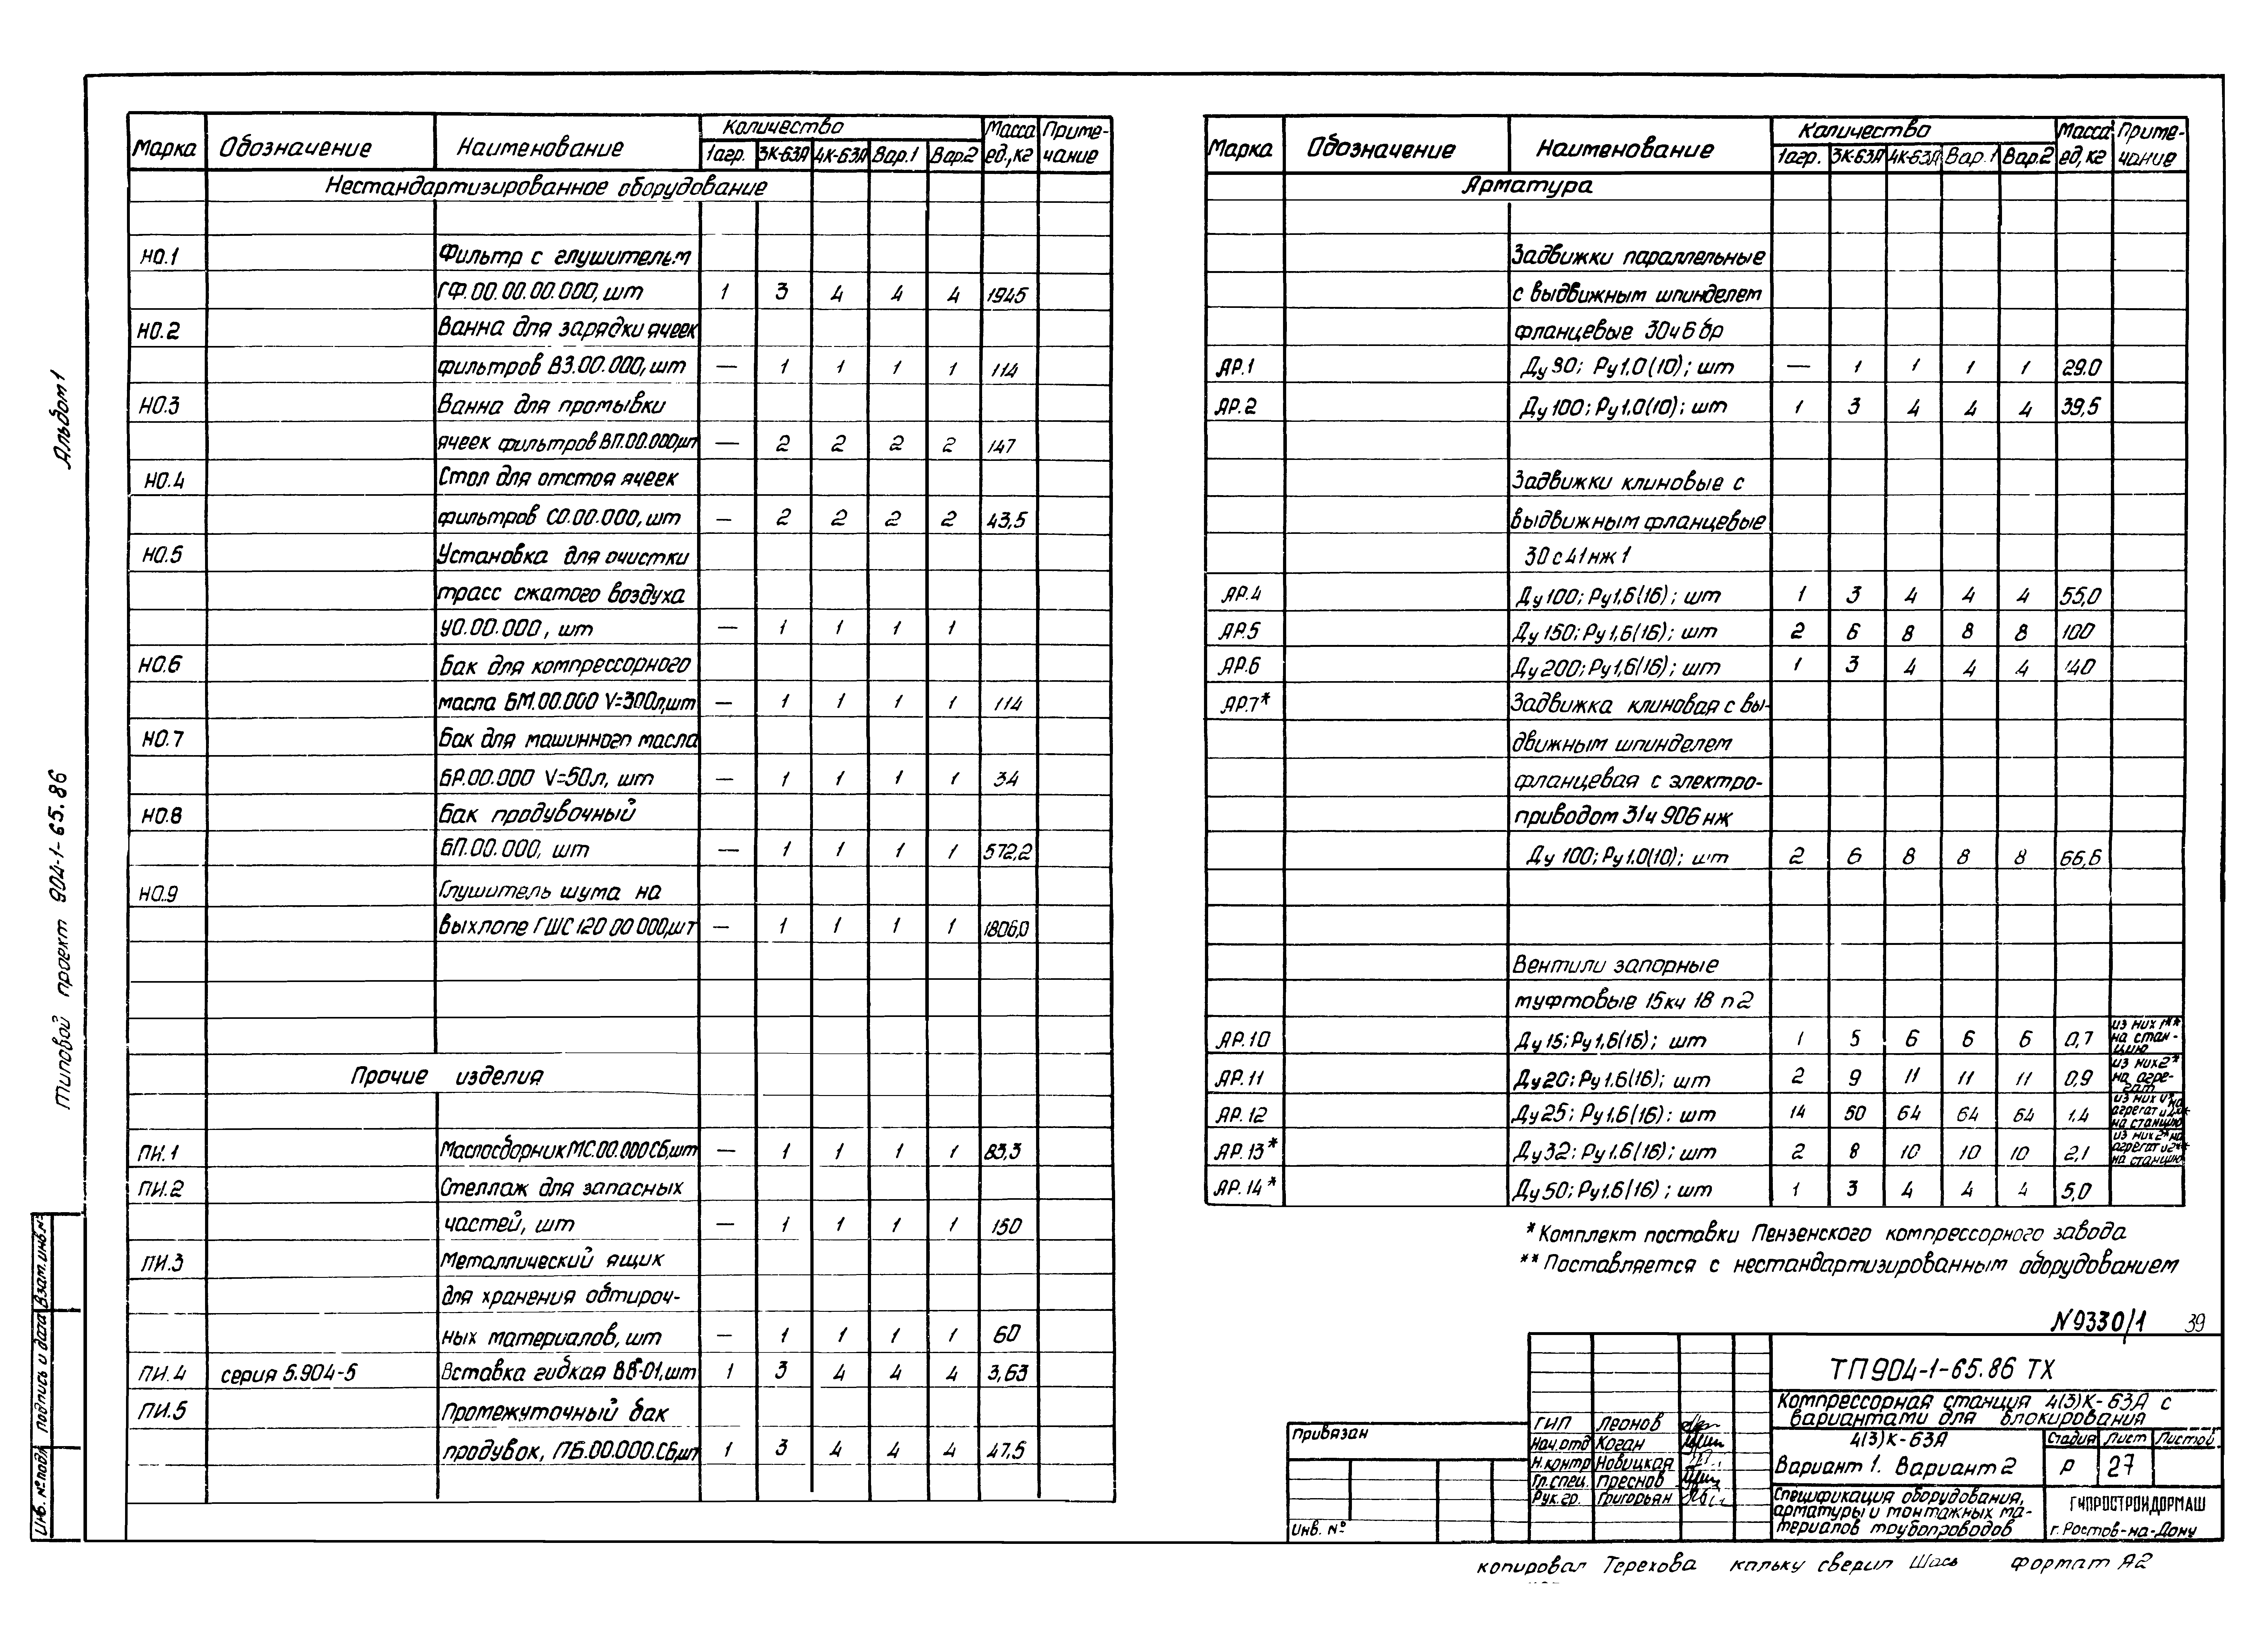 Альбом 1
Типовой проект 904-1-65.86
Взам. инв. №
Подпись и дата
Инв. № подл.
Марка Обозначение Наименование Количество Масса ед., кг Примечание
1агр. 3К-63А 4К-63А Вар.1 Вар.2
Нестандартизированное оборудование
НО.1 Фильтр с глушителем
ГФ.00.00.00.000, шт 1 3 4 4 4 1945
НО.2 Ванна для зарядки ячеек
фильтров ВЗ.00.000, шт — 1 1 1 1 114
НО.3 Ванна для промывки
ячеек фильтров ВП.00.000, шт — 2 2 2 2 147
НО.4 Стол для отстоя ячеек
фильтров СО.00.000, шт — 2 2 2 2 43,5
НО.5 Установка для очистки
трасс сжатого воздуха
УО.00.000, шт — 1 1 1 1
НО.6 Бак для компрессорного
масла БМ.00.000 V=300л, шт — 1 1 1 1 114
НО.7 Бак для машинного масла
БР.00.000 V=50л, шт — 1 1 1 1 34
НО.8 Бак продувочный
БП.00.000, шт — 1 1 1 1 572,2
НО.9 Глушитель шума на
выхлопе ГШС 120.00.000, шт — 1 1 1 1 1806,0
Прочие изделия
ПИ.1 Маслосборник МС.00.000 Сб, шт — 1 1 1 1 83,3
ПИ.2 Стеллаж для запасных
частей, шт — 1 1 1 1 150
ПИ.3 Металлический ящик
для хранения обтироч-
ных материалов, шт — 1 1 1 1 60
ПИ.4 серия 5.904-5 Вставка гибкая ВВ-01, шт 1 3 4 4 4 3,63
ПИ.5 Промежуточный бак
продувок, ПБ.00.000.Сб, шт 1 3 4 4 4 47,5
Марка Обозначение Наименование Количество Масса ед, кг Примечание
1агр. 3К-63А 4К-63А Вар.1 Вар.2
Арматура
Задвижки параллельные
с выдвижным шпинделем
фланцевые 30ч6бр
АР.1 Ду 80; Ру1,0(10); шт — 1 1 1 1 29.0
АР.2 Ду 100; Ру1,0(10); шт 1 3 4 4 4 39,5
Задвижки клиновые с
выдвижным фланцевые
30с41нж1
АР.4 Ду 100; Ру1,6(16); шт 1 3 4 4 4 55,0
АР.5 Ду 150; Ру1,6(16); шт 2 6 8 8 8 100
АР.6 Ду 200; Ру1,6(16); шт 1 3 4 4 4
АР.7* Задвижка клиновая с вы-
движным шпинделем
фланцевая с электро-
приводом 31ч 906 нж
Ду 100; Ру1.0(10); шт 2 6 8 8 8 66,6
Вентили запорные
муфтовые 15кч 18 п2
АР.10 Ду 15; Ру1,6(16); шт 1 5 6 6 6 0,7 из них 1** на стан-цию
АР.11 Ду 20; Ру1.6(16); шт 2 9 11 11 11 0,9 из них 2* на агре-гат
АР.12 Ду 25; Ру1.6(16): шт 14 50 64 64 64 1.4 из них на агрегат и на станцию
АР.13* Ду 32; Ру1.6(16); шт 2 8 10 10 10 2,1 из них 2* на агрегат и 2** на станцию
АР.14* Ду 50; Ру1.6(16); шт 1 3 4 4 4 5,0
* Комплект поставки Пензенского компрессорного завода
** Поставляется с нестандартизированным оборудованием
N9330/1 39
ТП904-1-65.86 ТХ
Компрессорная станция 4(3)К-63А с
вариантами для блокирования
4(3)К-63А
Вариант 1. Вариант 2
Стадия Лист Листов
Р 27
Спецификация оборудования,
арматуры и монтажных ма-
териалов трубопроводов
ГИПРОСТРОЙДОРМАШ
г. Ростов-на-Дону
ГИП Леонов
Нач.отд Коган
Н.контр Новицкая
Гл.спец. Преснов
Рук.гр. Григорьян
Привязан
Инв. №
копировал Терехова кальку сверил Шась формат А2